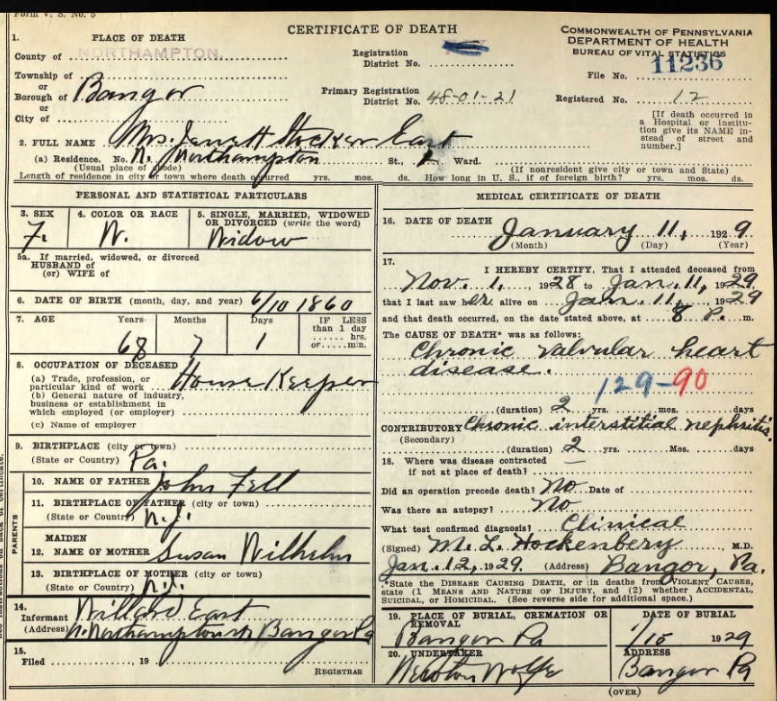 Form V. S. No. 5
CERTIFICATE OF DEATH
COMMONWEALTH OF PENNSYLVANIA
DEPARTMENT OF HEALTH
BUREAU OF VITAL STATISTICS
1. PLACE OF DEATH
County of NORTHAMPTON
Registration District No.
File No. 11236
Township of
or
Borough of Bangor
or
City of
Primary Registration District No. 48-01-21
Registered No. 12
[If death occurred in a Hospital or Institution give its NAME instead of street and number.]
2. FULL NAME Mrs. Janet H Stocker East
(a) Residence. No. N. Northampton St., Ward.
(Usual place of abode) (If nonresident give city or town and State)
Length of residence in city or town where death occurred yrs. mos. ds. How long in U. S., if of foreign birth? yrs. mos. ds.
PERSONAL AND STATISTICAL PARTICULARS
3. SEX
F.
4. COLOR OR RACE
W.
5. SINGLE, MARRIED, WIDOWED OR DIVORCED (write the word)
Widow
5a. If married, widowed, or divorced
HUSBAND of
(or) WIFE of
6. DATE OF BIRTH (month, day, and year) 6/10 1860
7. AGE Years Months Days IF LESS than 1 day
68 7 1 hrs. or min.
8. OCCUPATION OF DECEASED
(a) Trade, profession, or particular kind of work House Keeper
(b) General nature of industry, business or establishment in which employed (or employer)
(c) Name of employer
9. BIRTHPLACE (city or town)
(State or Country) Pa.
PARENTS
10. NAME OF FATHER John Fell
11. BIRTHPLACE OF FATHER (city or town)
(State or Country) N.J.
12. MAIDEN NAME OF MOTHER Susan Wilhelm
13. BIRTHPLACE OF MOTHER (city or town)
(State or Country) N.J.
14. Informant Willard East
(Address) N. Northampton st Bangor Pa
15. Filed , 19 REGISTRAR
MEDICAL CERTIFICATE OF DEATH
16. DATE OF DEATH January 11, 1929
(Month) (Day) (Year)
17. I HEREBY CERTIFY, That I attended deceased from
Nov. 1, 1928 to Jan. 11, 1929
that I last saw her alive on Jan. 11, 1929
and that death occurred, on the date stated above, at 8 P. m.
The CAUSE OF DEATH* was as follows:
Chronic valvular heart
disease.
129-90
(duration) 2 yrs. mos. days
CONTRIBUTORY Chronic interstitial nephritis
(Secondary)
(duration) 2 yrs. Mos. days
18. Where was disease contracted
if not at place of death? —
Did an operation precede death? No Date of
Was there an autopsy? No
What test confirmed diagnosis? Clinical
(Signed) M. L. Hockenbery M.D.
Jan. 12, 1929. (Address) Bangor, Pa.
*State the DISEASE CAUSING DEATH, or in deaths from VIOLENT CAUSES, state (1 MEANS AND NATURE OF INJURY, and (2) whether ACCIDENTAL, SUICIDAL, or HOMICIDAL. (See reverse side for additional space.)
19. PLACE OF BURIAL, CREMATION OR REMOVAL
Bangor Pa
DATE OF BURIAL
1/15 1929
20. UNDERTAKER
Newton Wolfe
ADDRESS
Bangor Pa
(OVER)